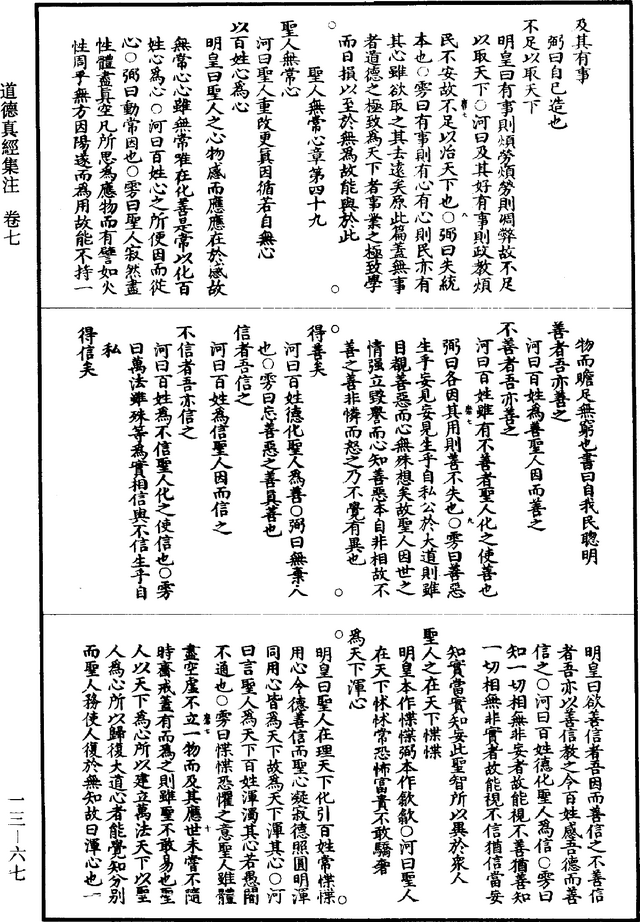 及其有事
弼曰自己造也
不足以取天下
明皇曰有事則煩勞煩勞則凋弊故不足
以取天下○河曰及其好有事則政教煩
民不安故不足以治天下也○弼曰失統
本也○雱曰有事則有心有心則民亦有
其心雖欲取之其去遠矣原此篇蓋無事
者道德之極致為天下者事業之極致學
而日損以至於無為故能與於此
聖人無常心章第四十九
聖人無常心
河曰聖人重改更貴因循若自無心
以百姓心為心
明皇曰聖人之心物感而應應在於感故
無常心心雖無常唯在化善是常以化百
姓心為心○河曰百姓心之所便因而從
心○弼曰動常因也○雱曰聖人寂然盡
性體盡真空凡所思為應物而有譬如火
性周乎無方因陽遂而為用故能不持一
物而贍足無窮也書曰自我民聰明
善者吾亦善之
河曰百姓為善聖人因而善之
不善者吾亦善之
河曰百姓雖有不善者聖人化之使善也
弼曰各因其用則善不失也○雱曰善惡
生乎妄見妄見生乎自私公於大道則雖
目覩善惡而心無殊想矣故聖人因世之
情强立毀譽而心知善惡本自非相故不
善之善非憐而恕之乃不覺有異也
得善矣
河曰百姓德化聖人為善○弼曰無棄人
也○雱曰忘善惡之善真善也
信者吾信之
河曰百姓為信聖人因而信之
不信者吾亦信之
河曰百姓為不信聖人化之使信也○雱
曰萬法雖殊等為實相信與不信生乎自
私
得信矣
明皇曰欲善信者吾因而善信之不善信
者吾亦以善信教之令百姓感吾德而善
信之○河曰百姓德化聖人為信○雱曰
知一切相無非妄者故能視不善猶善知
一切相無非實者故能視不信猶信當妄
知實當實知妄此聖智所以異於衆人
聖人之在天下惵惵
明皇本作惵惵弼本作歙歙○河曰聖人
在天下怵怵常恐怖富貴不敢驕奢
為天下渾心
明皇曰聖人在理天下化引百姓常惵惵
用心令德善信而聖心凝寂德照圓明渾
同用心皆為天下故為天下渾其心○河
曰言聖人為天下百姓渾濁其心若愚闇
不通也○雱曰惵惵恐懼之意聖人雖體
盡空虛不立一物而及其應世未嘗不隨
時齋戒蓋有而為之則雖聖不敢易也聖
人以天下為心所以建立萬法天下以聖
人為心所以歸復大道心者能覺知分別
而聖人務使人復於無知故曰渾心也一
道德真經集注　卷七
一三—六七